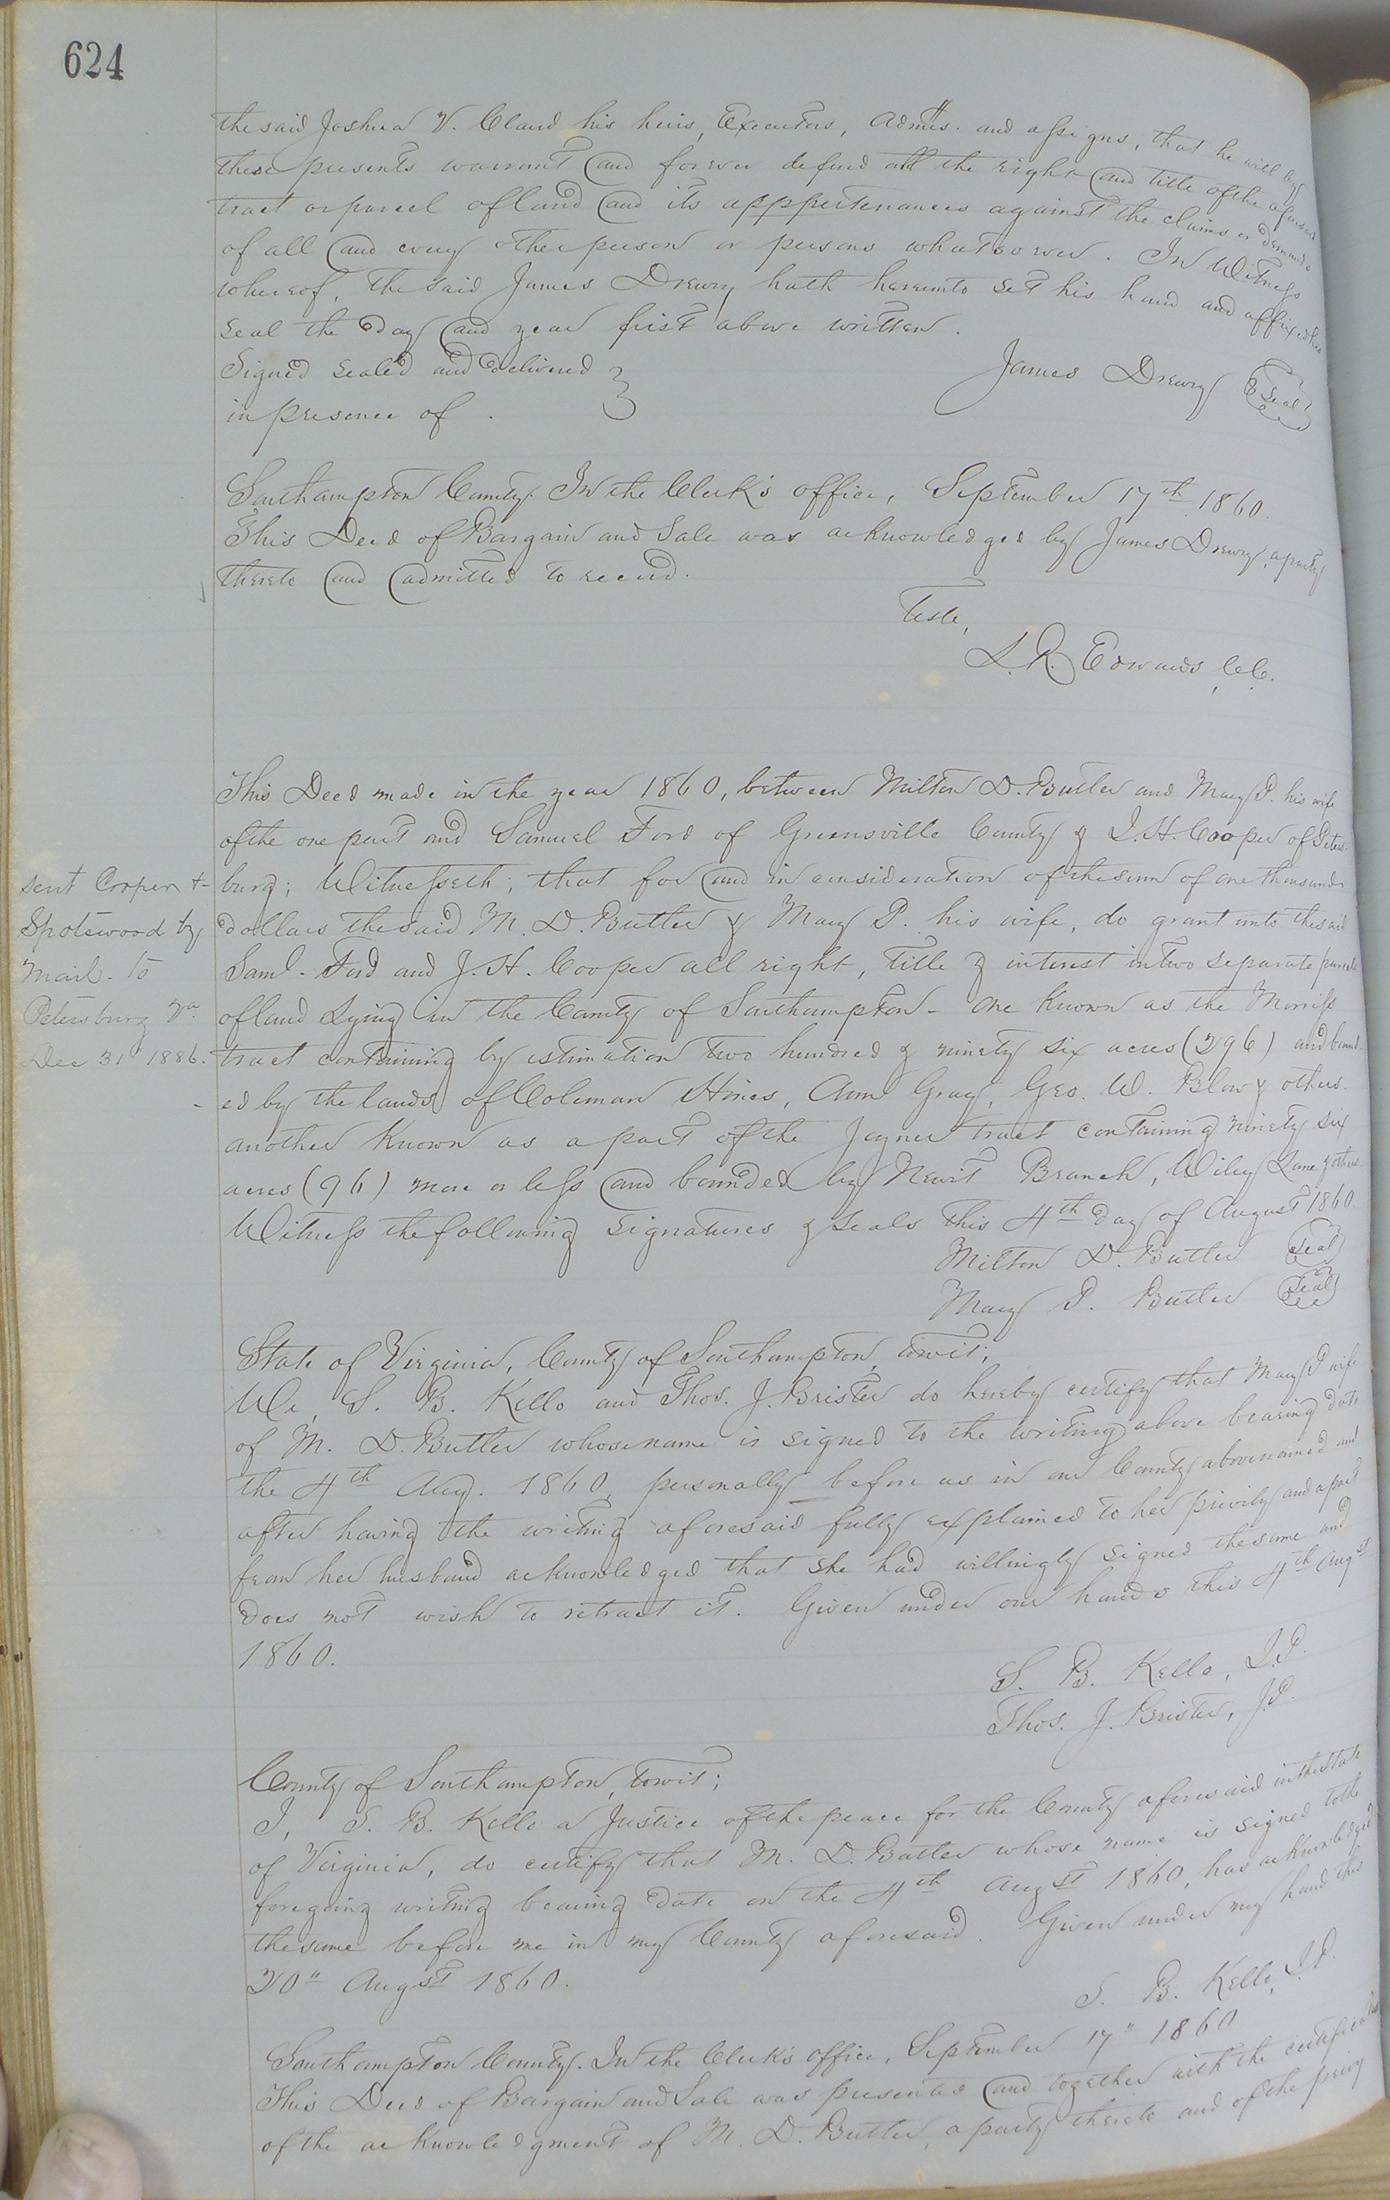 624
the said Joshua V. Claud his heirs, Executors, Admrs. and assigns, that he will by
these presents warrant and forever defend all the right and title of the aforesaid
tract or parcel of land and its apppertenances against the claims or demands
of all and every other person or persons whatsoever. In Witness
whereof, the said James Drewry hath hereunto set his hand and affixed his
seal the day and year first above written.
Signed sealed and delivered
in presence of .
James Drewry Seal
Southampton County. In the Clerk's office, September 17th 1860.
This Deed of Bargain and Sale was acknowledged by James Drewry, a party
thereto and admitted to record.
Teste,
L. R. Edwards, C.C.
This Deed made in the year 1860, between Milton D. Butler and Mary P. his wife
of the one part and Samuel Ford of Greensville County & J. H. Cooper of Peters-
burg; Witnesseth; that for and in consideration of the sum of one thousand
dollars the said M. D. Butler & Mary P. his wife, do grant unto the said
Saml. Ford and J. H. Cooper all right, title & interest in two separate parcels
of land Lying in the County of Southampton - One known as the Morriss
tract containing by estimation two hundred & ninety six acres (296) and bound-
ed by the lands of Coleman Hines, Ann Gray, Geo. W. Blow & others.
another known as a part of the Joyner tract containing ninety six
acres (96) more or less and bounded by Newit Branch, Wiley Lane & others
Witness the following signatures & seals this 4th day of August 1860.
Milton D. Butler Seal
Mary P. Butler Seal
sent Cooper +
Spotswood by
Mail to
Petersburg Va
Dec 31st 1886.
State of Virginia, County of Southampton, towit;
We, S. B. Kello and Thos. J. Brister do hereby certify that Mary P wife
of M. D. Butler whose name is signed to the writing above bearing date
the 4th Aug. 1860, personally before us in our County abovenamed and
after having the writing aforesaid fully explained to her privily and apart
from her husband acknowledged that she had willingly signed the same and
does not wish to retract it. Given under our hands this 4th Augst
1860.
S. B. Kello, J.P.
Thos. J. Brister, J.P.
County of Southampton, towit;
I, S. B. Kello a Justice of the peace for the County aforesaid in the State
of Virginia, do certify that M. D. Butler whose name is signed to the
foregoing writing bearing date on the 4th August 1860, has acknowledged
the same before me in my County aforesaid. Given under my hand this
20" Augst 1860.
S. B. Kello, J.P.
Southampton County. In the Clerk's office, September 17" 1860
This Deed of Bargain and Sale was presented and together with the certificates
of the acknowledgment of M. D. Butler, a party thereto and of the privy